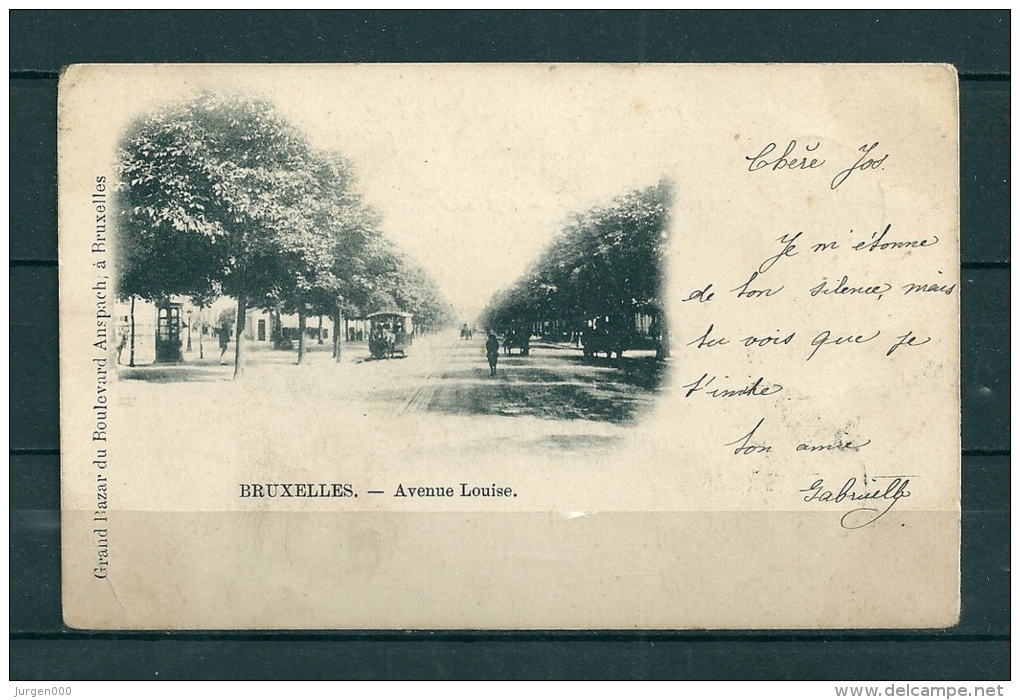 Grand Bazar du Boulevard Anspach, à Bruxelles
Chère Jos.
Je m'étonne
de ton silence, mais
tu vois que je
t'imite
ton amie
Gabrielle
BRUXELLES. — Avenue Louise.
Jurgen000
delcampe.net